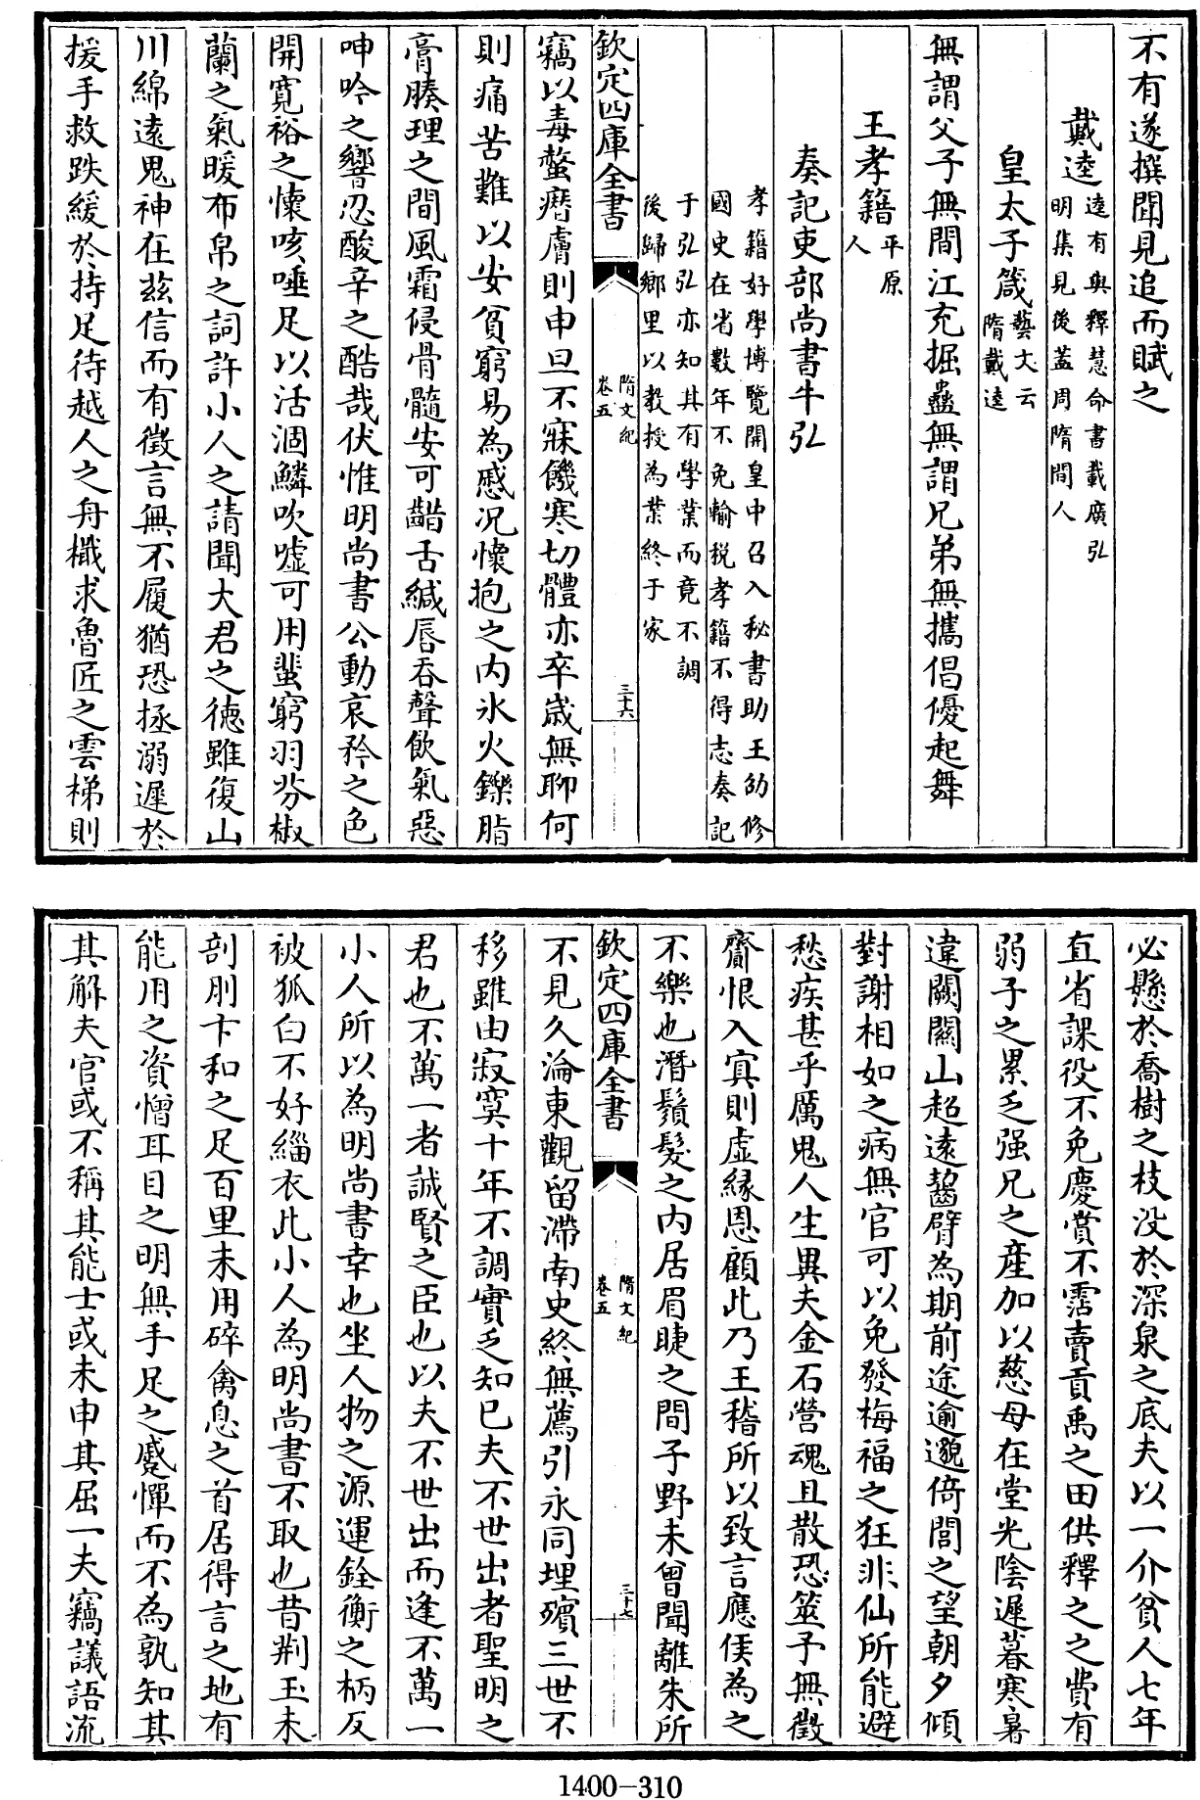 不有遂撰聞見追而賦之
戴逵
逵有與釋慧命書載廣弘
明集見後蓋周隋間人
皇太子箴
藝文云
隋戴逵
無謂父子無間江充掘蠱無謂兄弟無攜倡優起舞
王孝籍
平原
人
奏記吏部尚書牛弘
孝籍好學博覽開皇中召入秘書助王劭修
國史在省數年不免輸税孝籍不得志奏記
于弘弘亦知其有學業而竟不調
後歸鄉里以教授為業終于家
欽定四庫全書
隋文紀
卷五
三十六
竊以毒螫瘮膚則申旦不寐饑寒切體亦卒歲無聊何
則痛苦難以安貧窮易為慼况懷抱之内氷火鑠脂
膏腠理之間風霜侵骨髓安可齰舌緘唇吞聲飲氣惡
呻吟之響忍酸辛之酷哉伏惟明尚書公動哀矜之色
開寛裕之懷咳唾足以活涸鱗吹噓可用飛窮羽芬椒
蘭之氣暖布帛之詞許小人之請聞大君之德雖復山
川綿遠鬼神在兹信而有徵言無不履猶恐拯溺遲於
援手救跌緩於持足待越人之舟檝求魯匠之雲梯則
必懸於喬樹之枝没於深泉之底夫以一介貧人七年
直省課役不免慶賞不霑賣貢禹之田供釋之之費有
弱子之累乏强兄之產加以慈母在堂光陰遲暮寒暑
違闕關山超遠齧臂為期前途逾邈倚閭之望朝夕傾
對謝相如之病無官可以免發梅福之狂非仙所能避
愁疾甚乎厲鬼人生異夫金石營魂且散恐筮予無徵
齎恨入冥則虚緣恩顧此乃王稽所以致言應侯為之
不樂也潛鬚髮之内居眉睫之間子野未曾聞離朱所
欽定四庫全書
隋文紀
卷五
三十七
不見久淪東觀留滯南史終無薦引永同埋殯三世不
移雖由寂寞十年不調實乏知己夫不世出者聖明之
君也不萬一者誠賢之臣也以夫不世出而逢不萬一
小人所以為明尚書幸也坐人物之源運銓衡之柄反
被狐白不好緇衣此小人為明尚書不取也昔荆玉未
剖刖卞和之足百里未用碎禽息之首居得言之地有
能用之資憎耳目之明無手足之蹙憚而不為孰知其
其解夫官或不稱其能士或未申其屈一夫竊議語流
1400-310